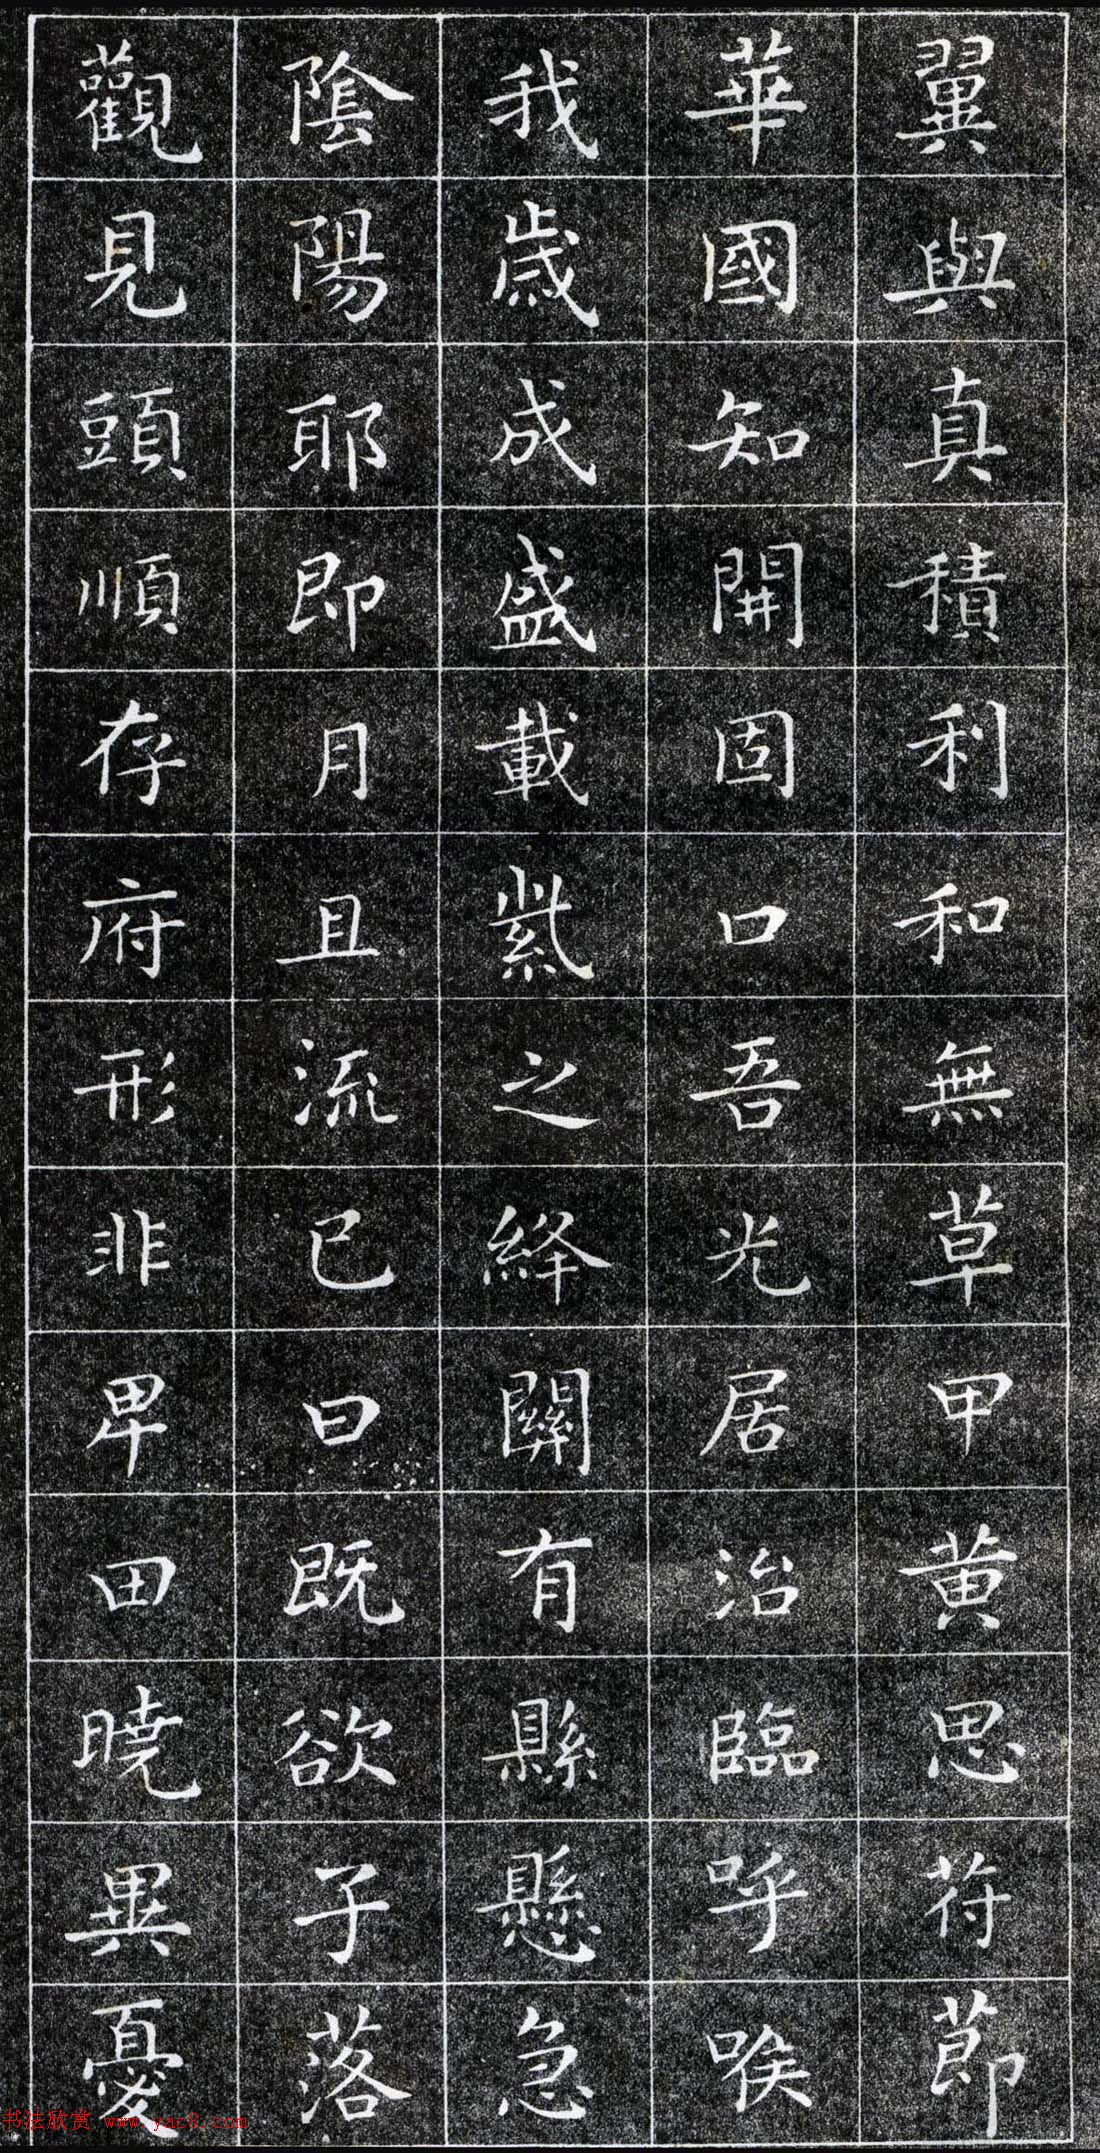 翼與真積利和無草甲黄思苻莭
華國知開固口吾光居治臨呼喉
我歲成盛載紫之絳關有縣懸急
陰陽耶即月且流已曰既欲子落
觀見頭順存府形非卑田曉異憂
书法欣赏 www.yac8.com